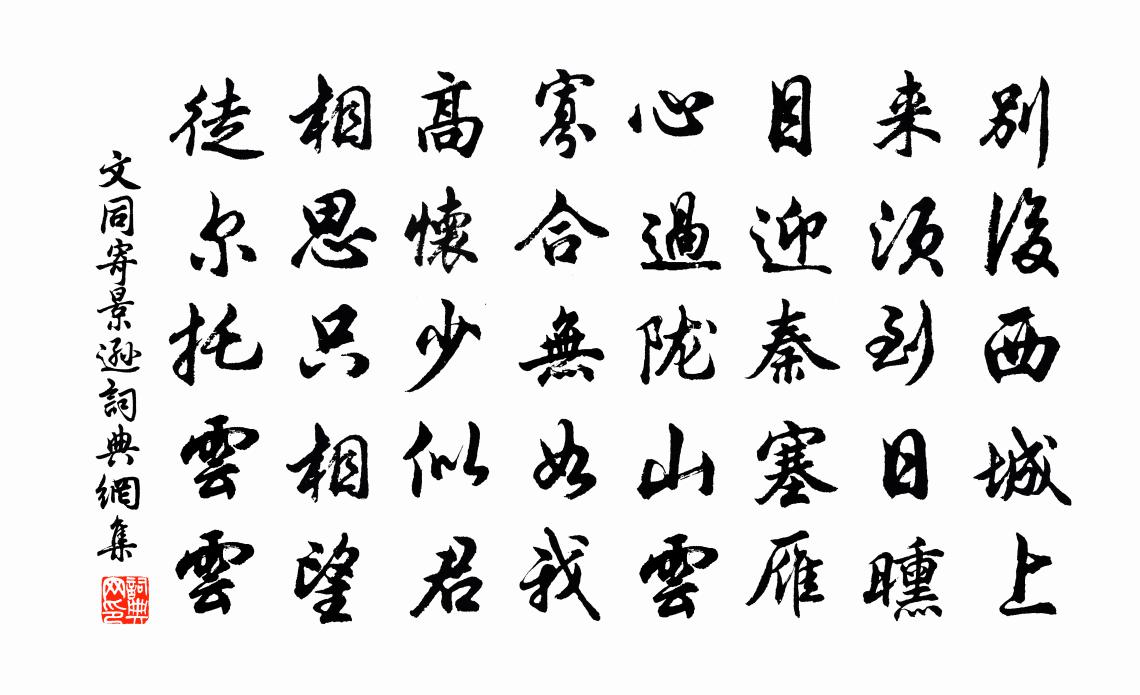 別後西城上
来須到日曛
目迎秦塞雁
心過陇山雲
寡合無如我
高懷少似君
相思只相望
徒尔托雲雲
文同寄景遜詞典網集
詞典网印